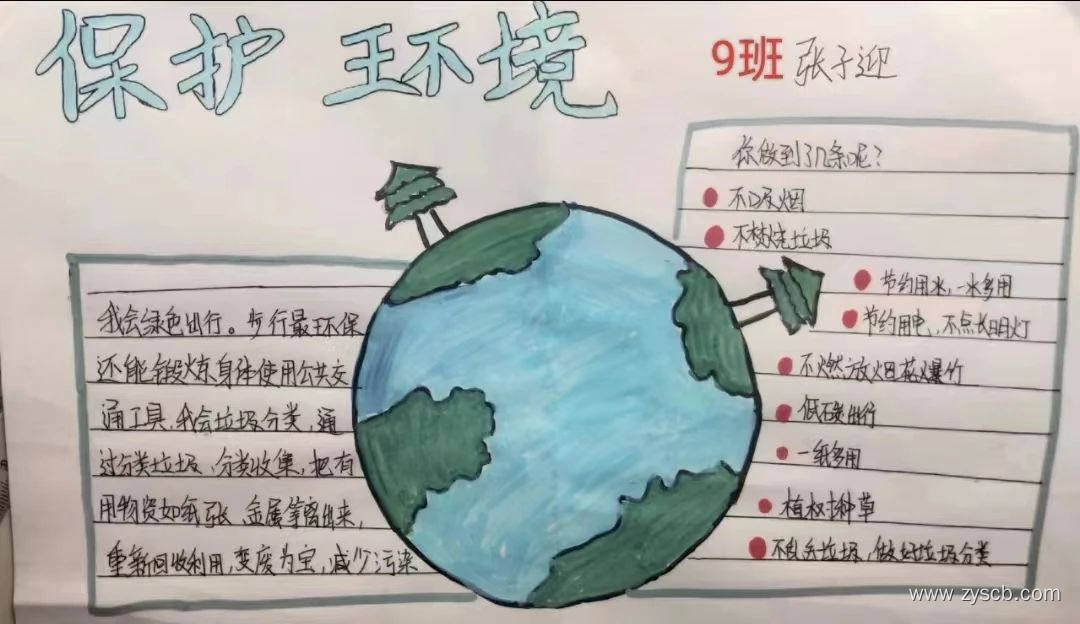 保护 环境
9班 张子迎
我会绿色出行。步行最环保
还能锻炼身体使用公共交
通工具,我会垃圾分类,通
过分类垃圾、分类收集,把有
用物资如纸张、金属等离出来,
重新回收利用,变废为宝,减少污染
你做到了几条呢?
不吸烟
不焚烧垃圾
节约用水,一水多用
节约用电,不点长明灯
不燃放烟花爆竹
低碳出行
一纸多用
植树种草
不乱丢垃圾,做好垃圾分类
www.zyscb.com